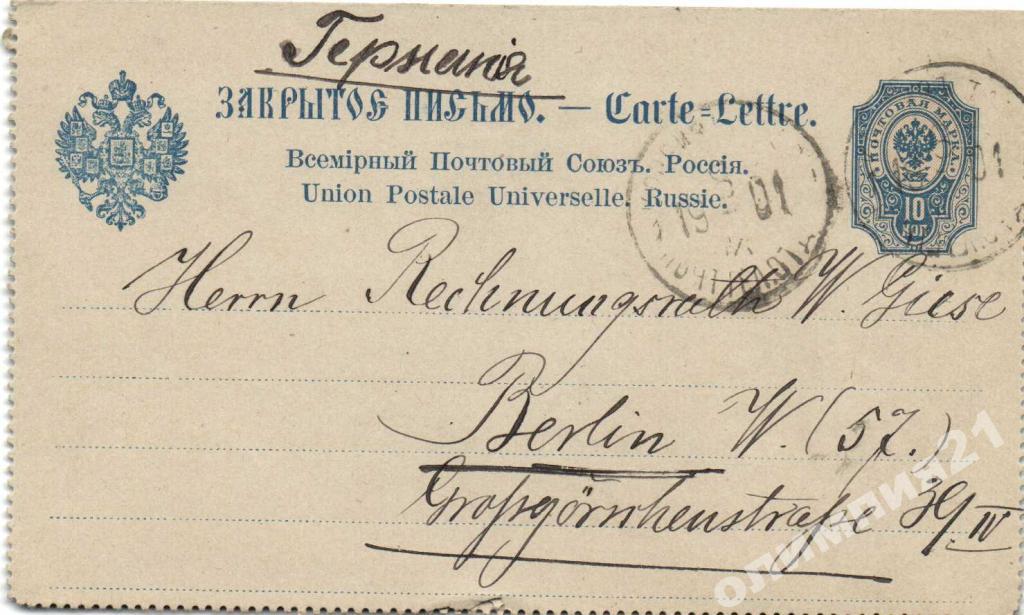 Германія
ЗАКРЫТОЕ ПИСЬМО. — Carte-Lettre.
Всемірный Почтовый Союзъ. Россія.
Union Postale Universelle. Russie.
ПОЧТОВАЯ МАРКА
10
КОП
19 01
01
Herrn Rechnungsrath W. Giese
Berlin W. (57.)
Großgörschenstraße 39 IV
олимпия21